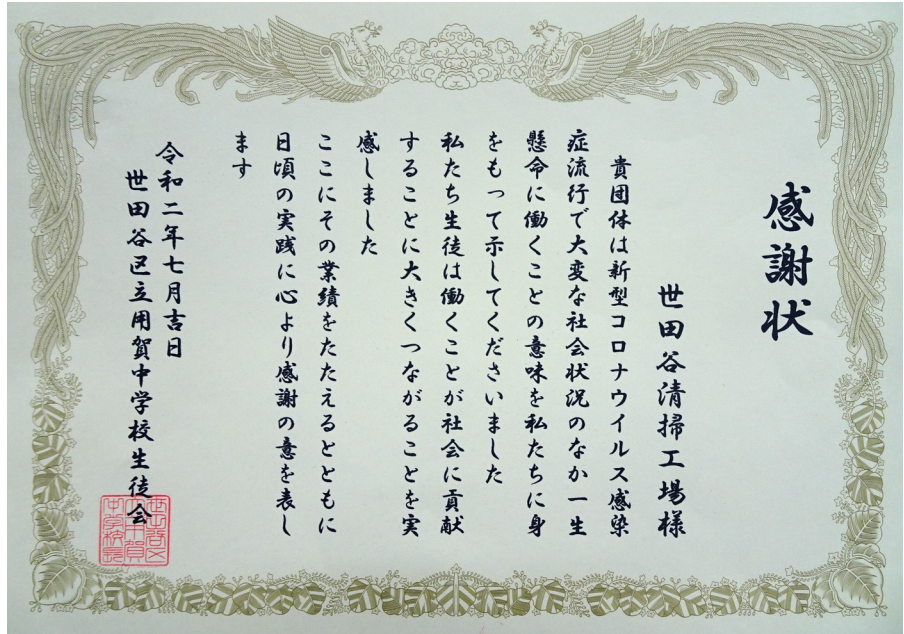 感謝状
世田谷清掃工場様
貴団体は新型コロナウイルス感染
症流行で大変な社会状況のなか一生
懸命に働くことの意味を私たちに身
をもって示してくださいました
私たち生徒は働くことが社会に貢献
することに大きくつながることを実
感しました
ここにその業績をたたえるとともに
日頃の実践に心より感謝の意を表し
ます
令和二年七月吉日
世田谷区立用賀中学校生徒会